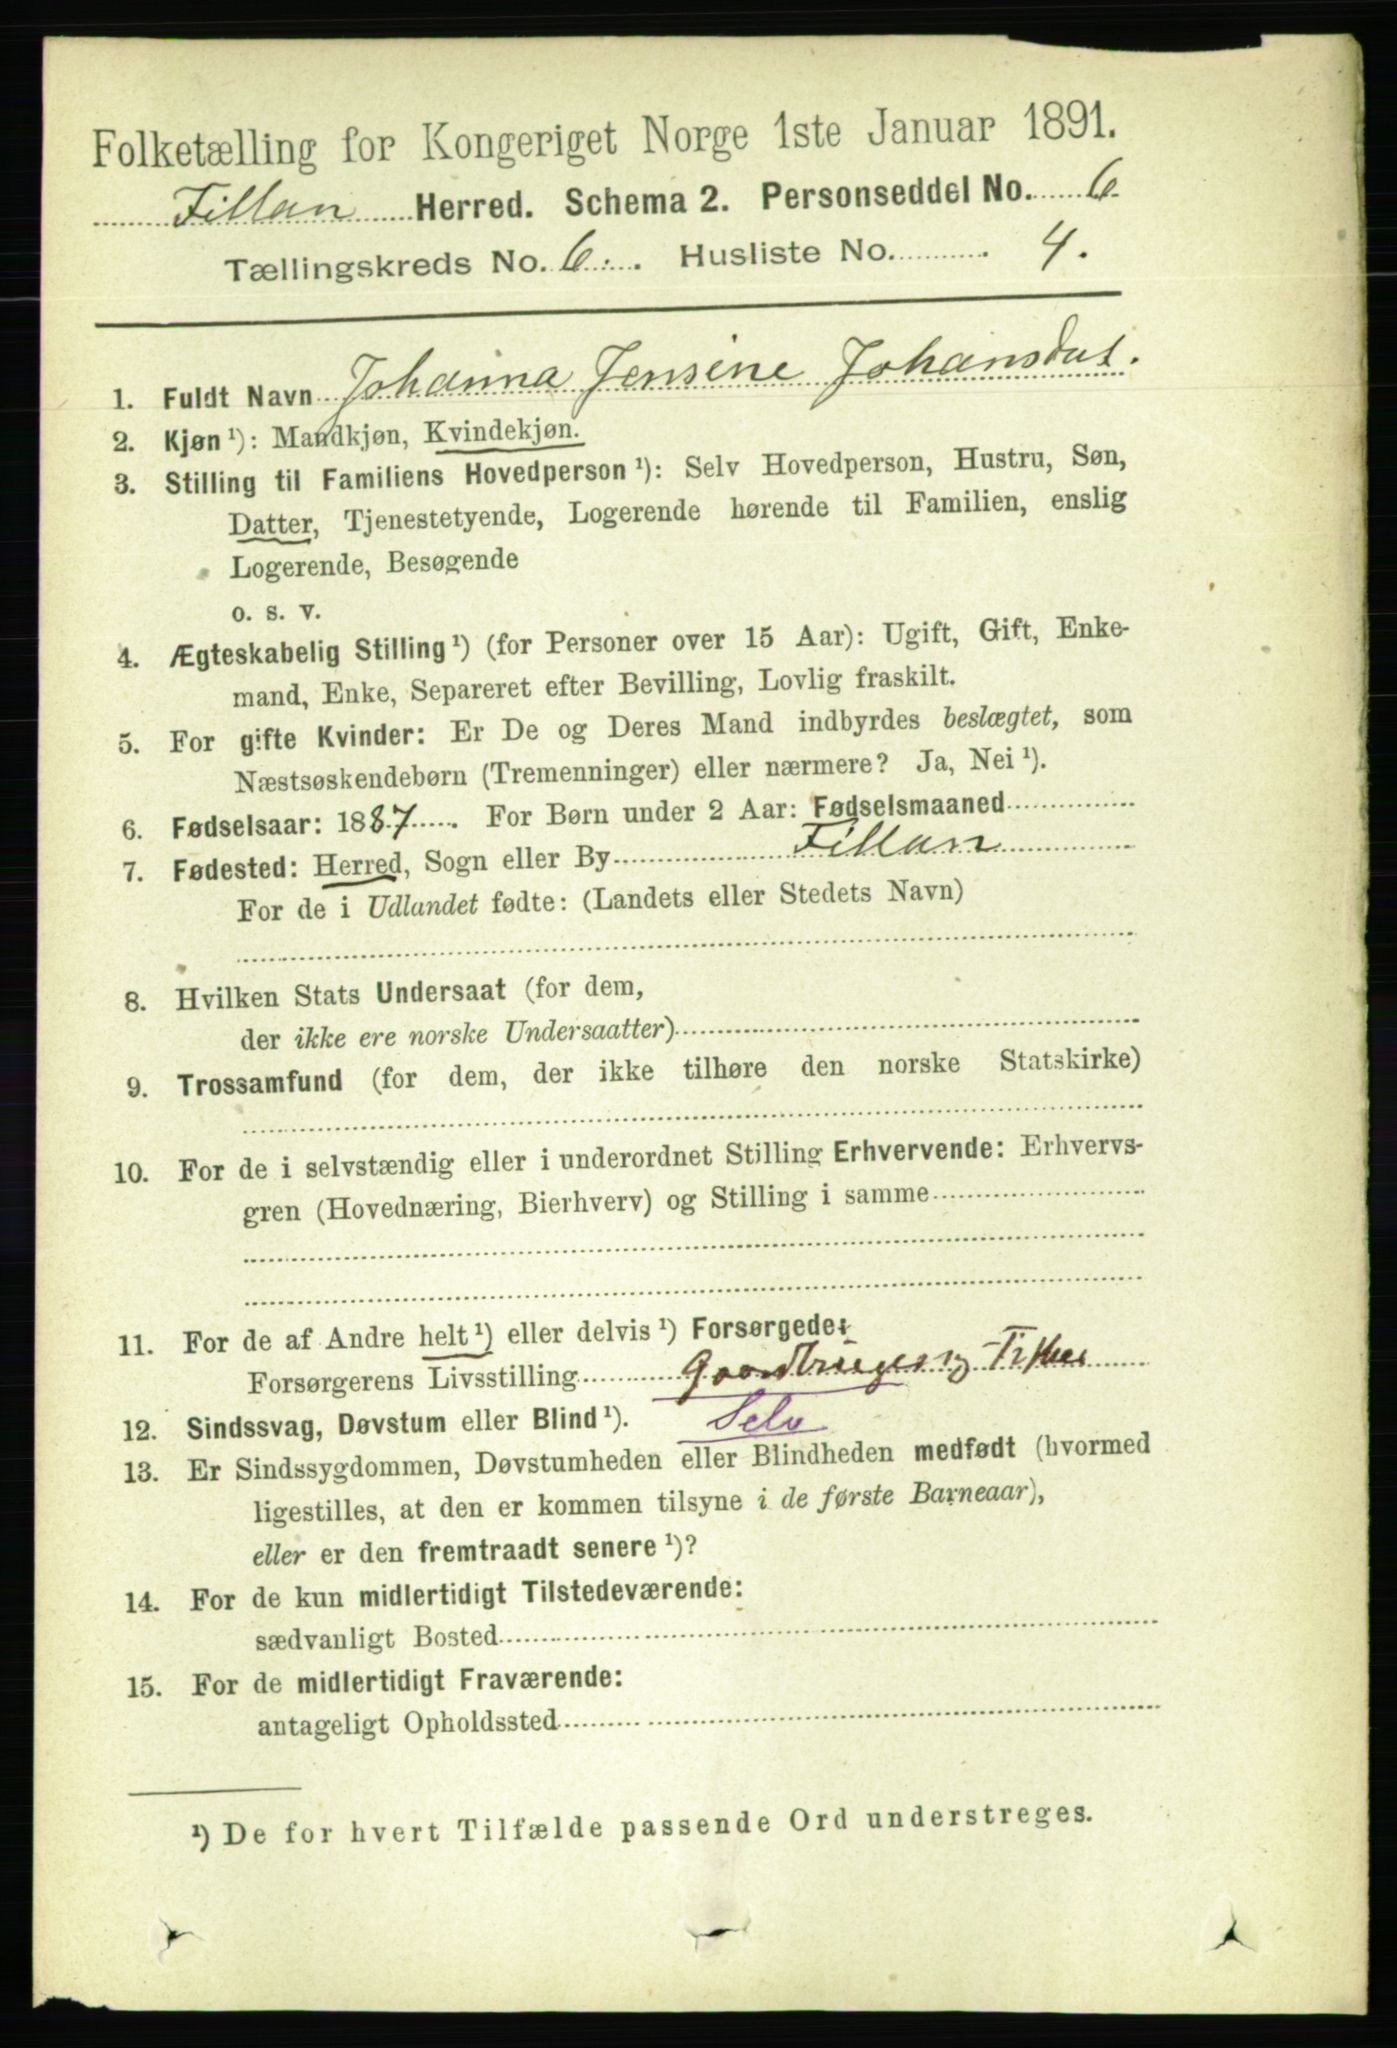 Folketælling for Kongeriget Norge 1ste Januar 1891.
Fillan Herred. Schema 2. Personseddel No. 6
Tællingskreds No. 6. Husliste No. 4.
1. Fuldt Navn Johanna Jensine Johansdat.
2. Kjøn ¹): Mandkjøn, Kvindekjøn.
3. Stilling til Familiens Hovedperson ¹): Selv Hovedperson, Hustru, Søn,
Datter, Tjenestetyende, Logerende hørende til Familien, enslig
Logerende, Besøgende
o. s. v.
4. Ægteskabelig Stilling ¹) (for Personer over 15 Aar): Ugift, Gift, Enke-
mand, Enke, Separeret efter Bevilling, Lovlig fraskilt.
5. For gifte Kvinder: Er De og Deres Mand indbyrdes beslægtet, som
Næstsøskendebørn (Tremenninger) eller nærmere? Ja, Nei ¹).
6. Fødselsaar: 1887. For Børn under 2 Aar: Fødselsmaaned
7. Fødested: Herred, Sogn eller By Fillan
For de i Udlandet fødte: (Landets eller Stedets Navn)
8. Hvilken Stats Undersaat (for dem,
der ikke ere norske Undersaatter)
9. Trossamfund (for dem, der ikke tilhøre den norske Statskirke)
10. For de i selvstændig eller i underordnet Stilling Erhvervende: Erhvervs-
gren (Hovednæring, Bierhverv) og Stilling i samme
11. For de af Andre helt ¹) eller delvis ¹) Forsørgede:
Forsørgerens Livsstilling Gaardbruger og Fisker
12. Sindssvag, Døvstum eller Blind ¹). Selv
13. Er Sindssygdommen, Døvstumheden eller Blindheden medfødt (hvormed
ligestilles, at den er kommen tilsyne i de første Barneaar),
eller er den fremtraadt senere ¹)?
14. For de kun midlertidigt Tilstedeværende:
sædvanligt Bosted
15. For de midlertidigt Fraværende:
antageligt Opholdssted
¹) De for hvert Tilfælde passende Ord understreges.